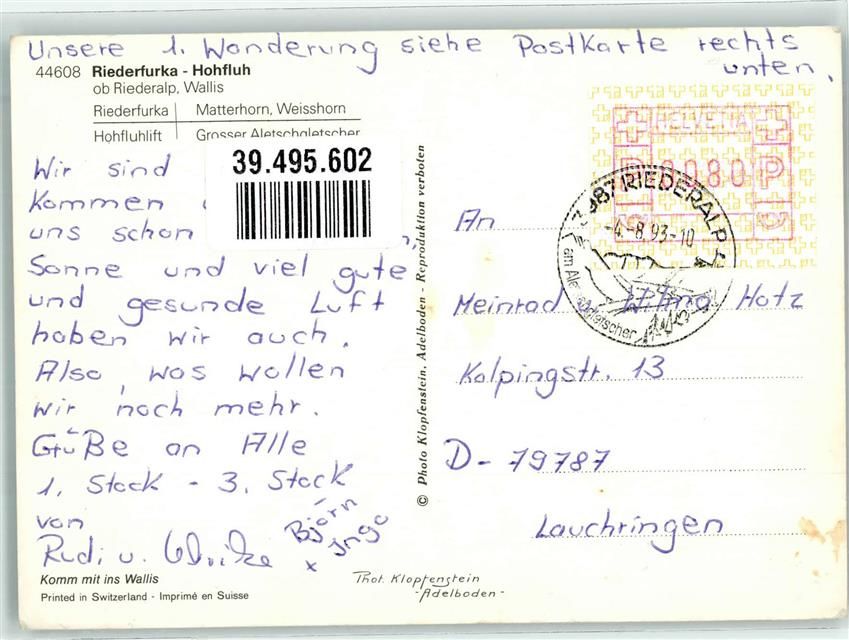 Unsere 1. Wanderung siehe Postkarte rechts
unten.
44608 Riederfurka - Hohfluh
ob Riederalp, Wallis
Riederfurka Matterhorn, Weisshorn
Hohfluhlift Grosser Aletschgletscher
39.495.602
Wir sind
kommen
uns schon
Sonne und viel gute
und gesunde Luft
haben wir auch.
Also, was wollen
wir noch mehr.
Grüße an Alle
1. Stock - 3. Stock
von
Rudi u. Ulrike
Björn
x Ingo
Komm mit ins Wallis
Printed in Switzerland - Imprimé en Suisse
© Photo Klopfenstein, Adelboden - Reproduktion verboten
Phot. Klopfenstein
- Adelboden -
HELVETIA
P 0080 P
3987 RIEDERALP
-4.-8.93-10
am Aletschgletscher
An
Meinrad Hotz
Kolpingstr. 13
D-79787
Lauchringen